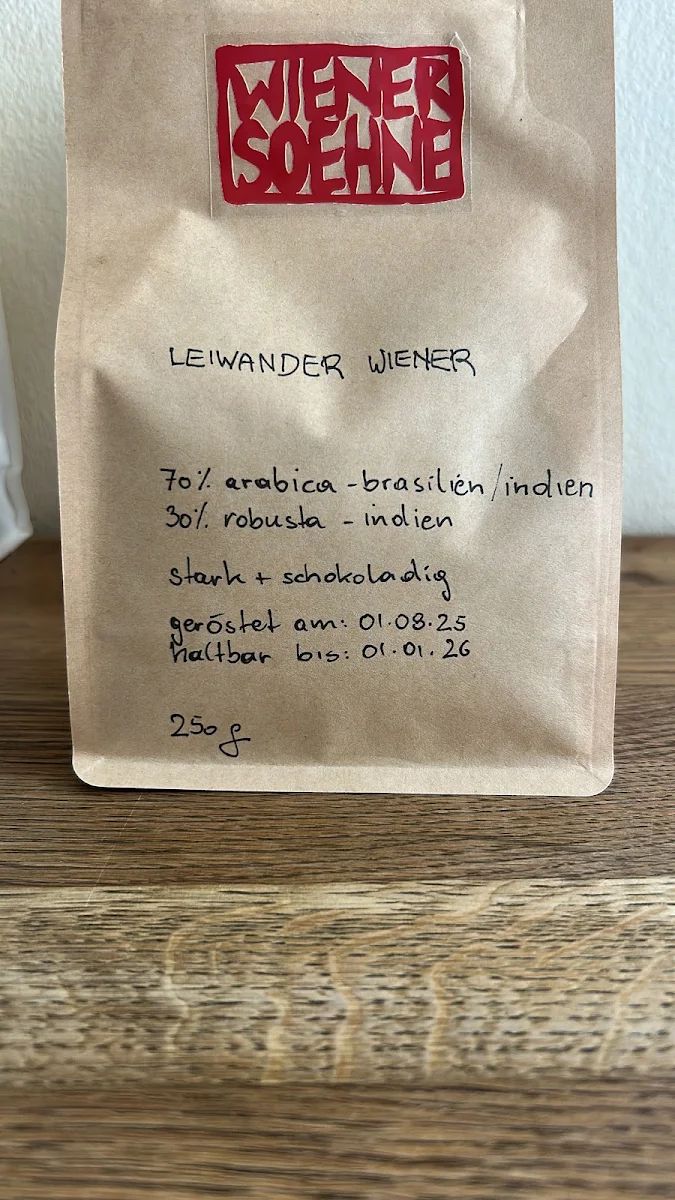 WIENER
SOEHNE
LEIWANDER WIENER
70% arabica - brasilien/indien
30% robusta - indien
stark + schokoladig
geröstet am: 01.08.25
haltbar bis: 01.01.26
250 g